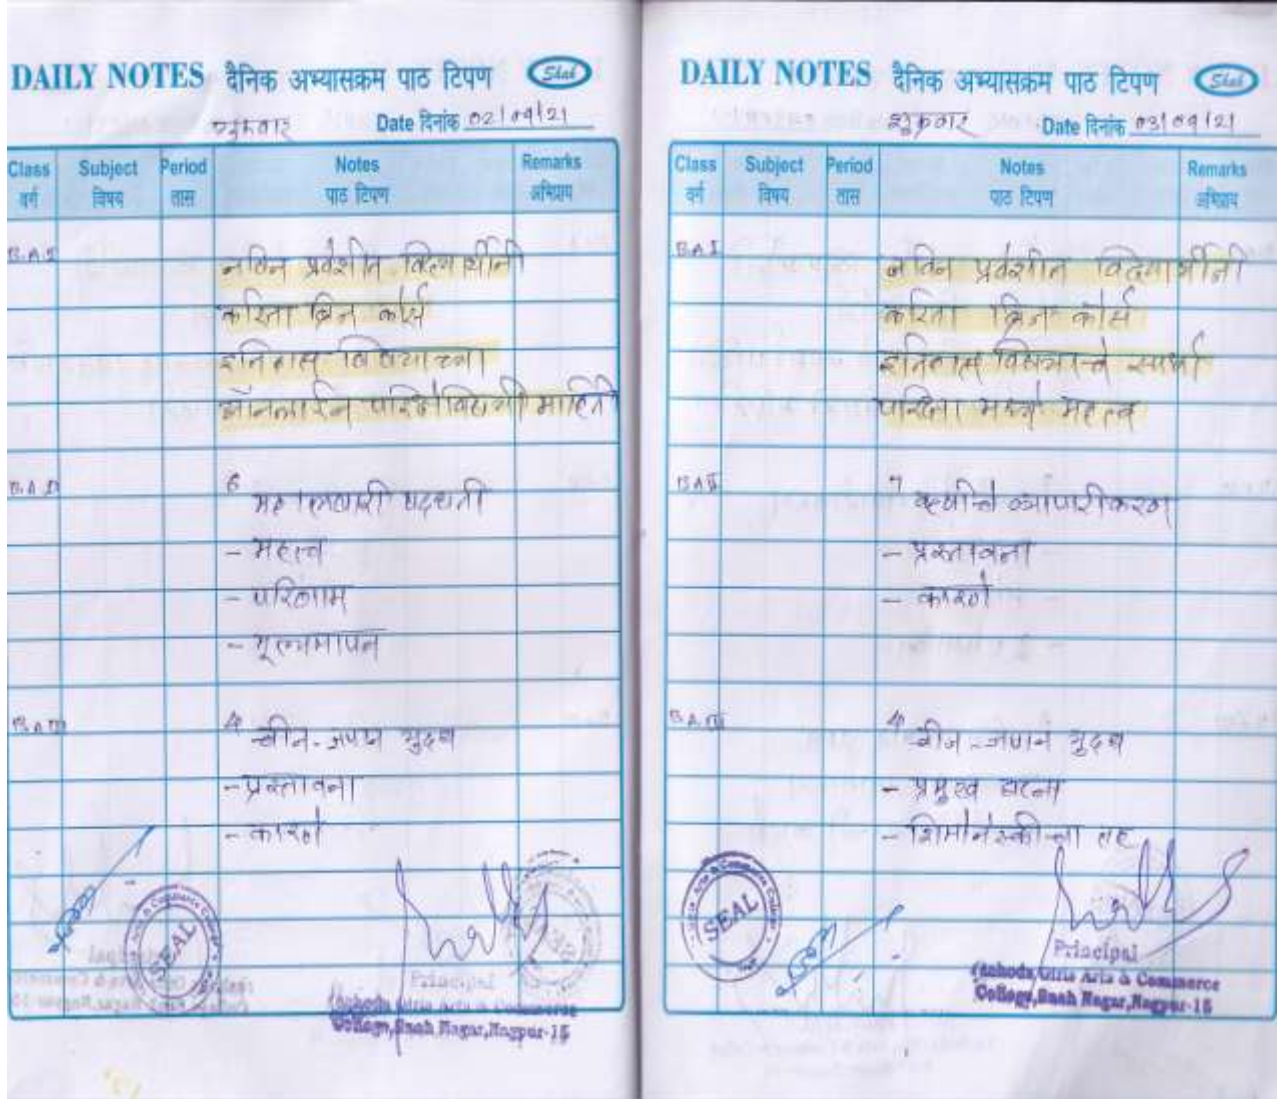 DAILY NOTES दैनिक अभ्यासक्रम पाठ टिपण Shah
Date दिनांक 02/09/21
Class Subject Period Notes Remarks
वर्ग विषय तास पाठ टिपण अभिप्राय
B.A I
नविन प्रवेशीत विद्यार्थीनी
करिता ब्रिज कोर्स
इतिहास विषयाच्या
ऑनलाईन परिक्षेविषयी माहिती
B.A II 6 महालवारी पद्धती
- महत्व
- परिणाम
- मूल्यमापन
B.A III 4 चीन-जपान युद्ध
- प्रस्तावना
- कारणे
SEAL
Principal
Girls Arts & Commerce
College, Snah Nagar, Nagpur-15
DAILY NOTES दैनिक अभ्यासक्रम पाठ टिपण Shah
शुक्रवार Date दिनांक 03/09/21
Class Subject Period Notes Remarks
वर्ग विषय तास पाठ टिपण अभिप्राय
B.A I
नविन प्रवेशीत विद्यार्थीनी
करिता ब्रिज कोर्स
इतिहास विषयाचे स्पर्धा
परिक्षा मध्ये महत्व
B.A II 7 कृषीचे व्यापारीकरण
- प्रस्तावना
- कारणे
B.A III 4 चीन-जपान युद्ध
- प्रमुख घटना
- शिमोनेस्कीचा तह
SEAL
Principal
Girls Arts & Commerce
College, Snah Nagar, Nagpur-15